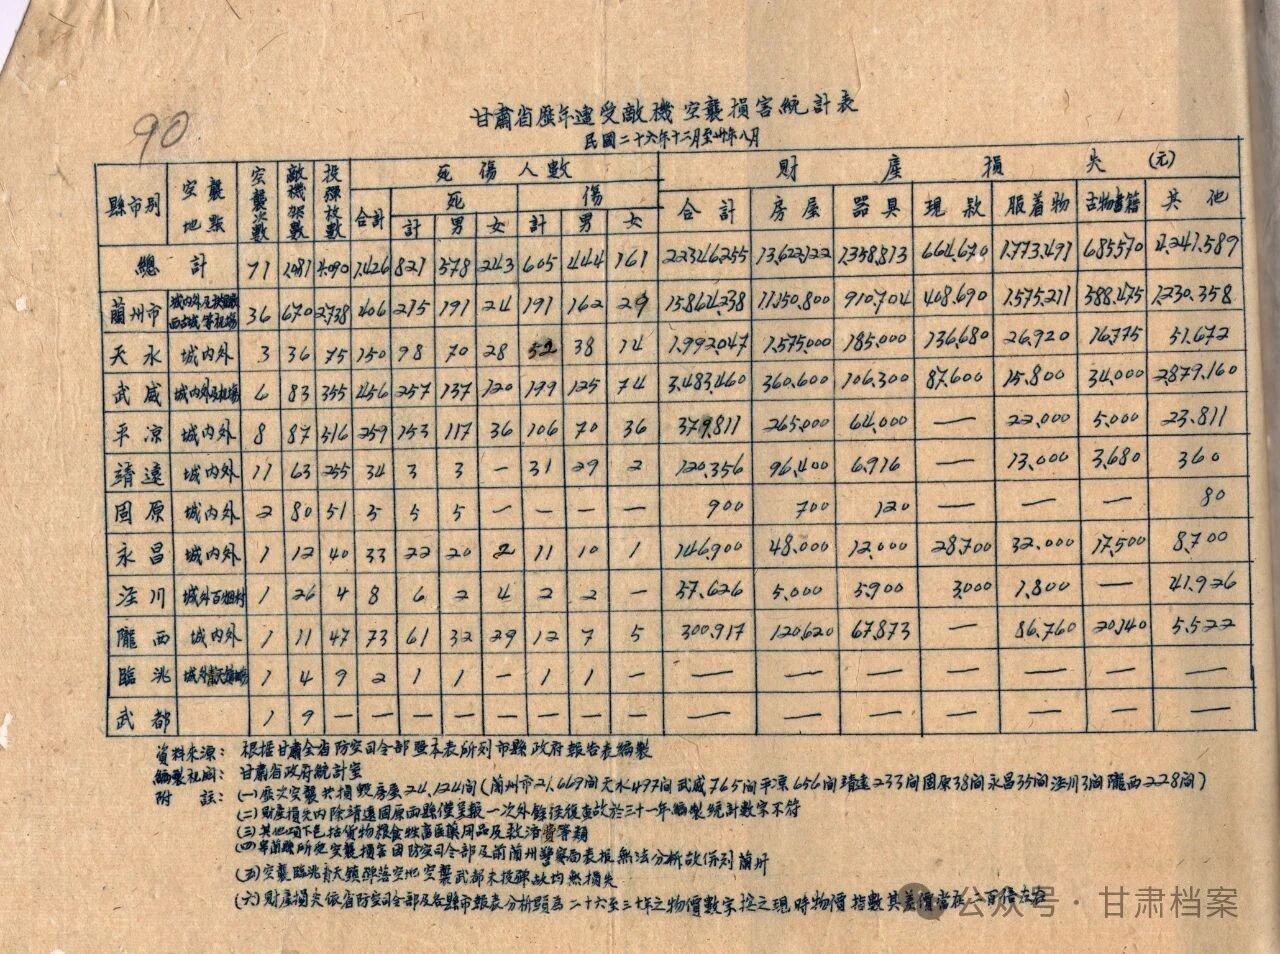 90
甘肅省歷年遭受敵機空襲損害統計表
民國二十六年十二月至卅年八月
縣市別 空襲地點 空襲次數 敵機架數 投彈枚數 死傷人數 財產損失(元)
合計 死 傷 合計 房屋 器具 現款 服着物 古物書籍 其他
計 男 女 計 男 女
總計 71 1,081 4,090 1,426 821 578 243 605 444 161 22,346,255 13,622,122 1,358,813 664,670 1,773,491 685,570 4,241,589
蘭州市 城內外及 西古城等機場 36 670 2,738 406 215 191 24 191 162 29 15,864,238 11,150,800 910,704 408,690 1,575,211 588,475 1,230,358
天水 城內外 3 36 75 150 98 70 28 52 38 14 1,992,047 1,575,000 185,000 136,680 26,920 16,775 51,672
武威 城內外及機場 6 83 355 456 257 137 120 199 125 74 3,483,460 360,600 106,300 87,600 15,800 34,000 2,879,160
平凉 城內外 8 87 516 259 153 117 36 106 70 36 379,811 265,000 64,000 — 22,000 5,000 23,811
靖遠 城內外 11 63 255 34 3 3 — 31 29 2 120,356 96,400 6,916 — 13,000 3,680 360
固原 城內外 2 80 51 5 5 5 — — — — 900 700 120 — — — 80
永昌 城內外 1 12 40 33 22 20 2 11 10 1 146,900 48,000 12,000 28,700 32,000 17,500 8,700
涇川 城外百烟村 1 26 4 8 6 2 4 2 2 — 57,626 5,000 5,900 3,000 1,800 — 41,926
隴西 城內外 1 11 47 73 61 32 29 12 7 5 300,917 120,620 67,873 — 86,760 20,140 5,522
臨洮 城外 1 4 9 2 1 1 — 1 1 — — — — — — — —
武都 1 9 — — — — — — — — — — — — — — —
資料來源：根据甘肅全省防空司令部暨本表所列市縣政府報告表編製
編製機關：甘肅省政府統計室
附註：(一)歷次空襲共損毀房屋24,124間(蘭州市21,669間天水497間武威765間平凉656間靖遠233間固原38間永昌35間涇川3間隴西228間)
(二)財產損失內除靖遠固原兩縣僅呈報一次外餘經復查故於三十一年編製統計數字不符
(三)其他項下包括貨物糧食牲畜医藥用品及救濟費等類
(四)皋蘭縣所受空襲損害因防空司令部及前蘭州警察局表报無法分析故併列蘭州
(五)空襲臨洮 天鎮彈落空地空襲武都未投彈故均無損失
(六)財產損失依省防空司令部及各縣市報表分析 為二十六至三十年之物價數字按之現時物價指數其差價當在二百倍左右
公众号·甘肃档案